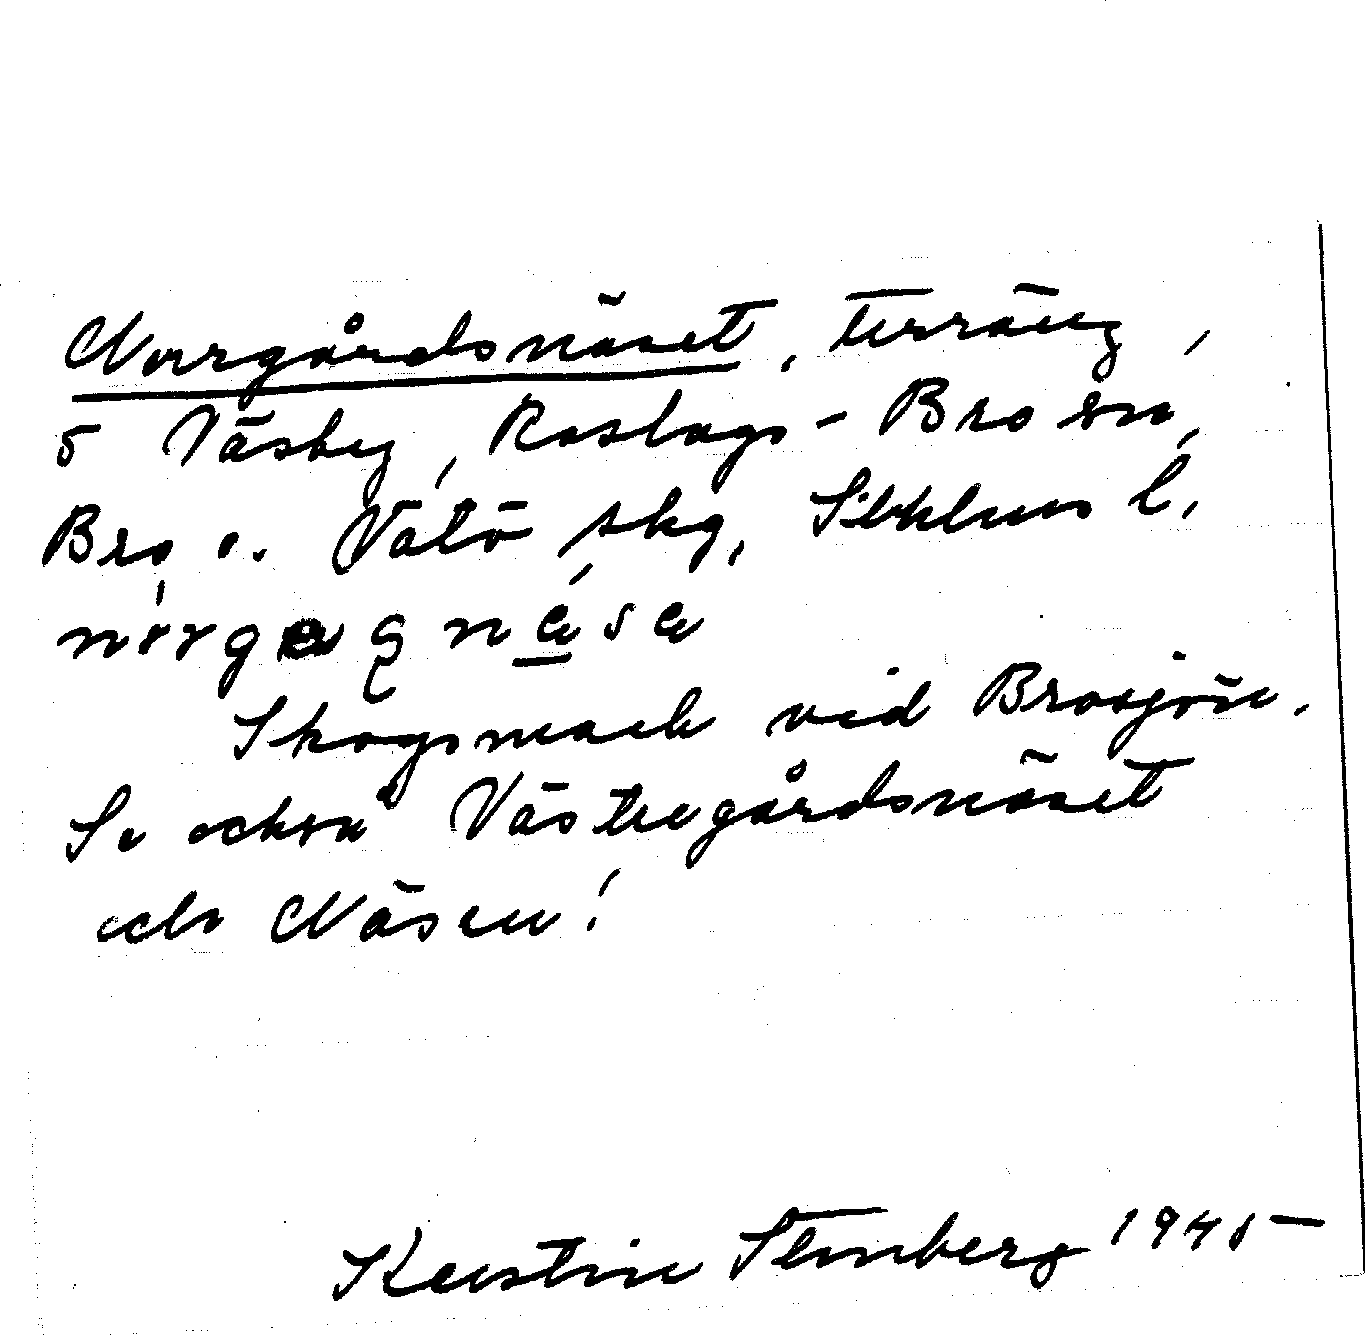 Norrgårdsnäset, terräng,
5 Väsby, Roslags-Bro sn,
Bro o. Vätö skg, Sthlms l.
Skogsmark vid Brosjön.
Se också Västergårdsnäset
och Näsen!
Kerstin Stenberg 1945